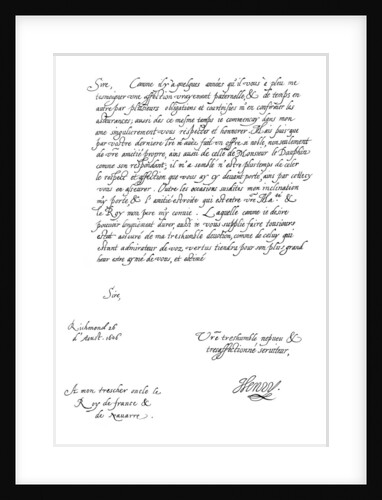 Sire, Comme il y'a quelques années qu'il vous à pleu me
tesmoigner une affection vrayement paternelle, & de temps en
autre par plusieurs obligations et courtoisies m'en confirmer les
asseurances, aussi des ce mesme temps ie commençay dans mon
ame singulierement vous respecter et honnorer. Mais puis que
par vostre derniere il m'a esté fait un offre si noble, non seulement
de vre amitié propre, ains aussi de celle de Monsieur le Dauphin
comme son respondant; il m'a semblé n'estre plus temps de celer
le respect et affection que vous ay cy devant porté, ains par cettecy
vous en asseurer. Outre les avances susdites mon inclination
my porte, & l'amitié estroite qui est entre vre Ma.té &
le Roy mon pere m'y convie. Laquelle comme ie desire
pouvoir longuement durer, aussi ie vous supplie faire tousiours
estat asseuré de ma treshumble devotion, comme de celuy qui
estant admirateur de voz vertus tiendra pour son plus grand
heur estre aymé de vous, et estimé
Sire,
Richmond 26
d'Aoust. 1606
Vre treshumble nepveu &
tresaffectionné serviteur,
Henry.
A mon trescher oncle le
Roy de france &
de Navarre.